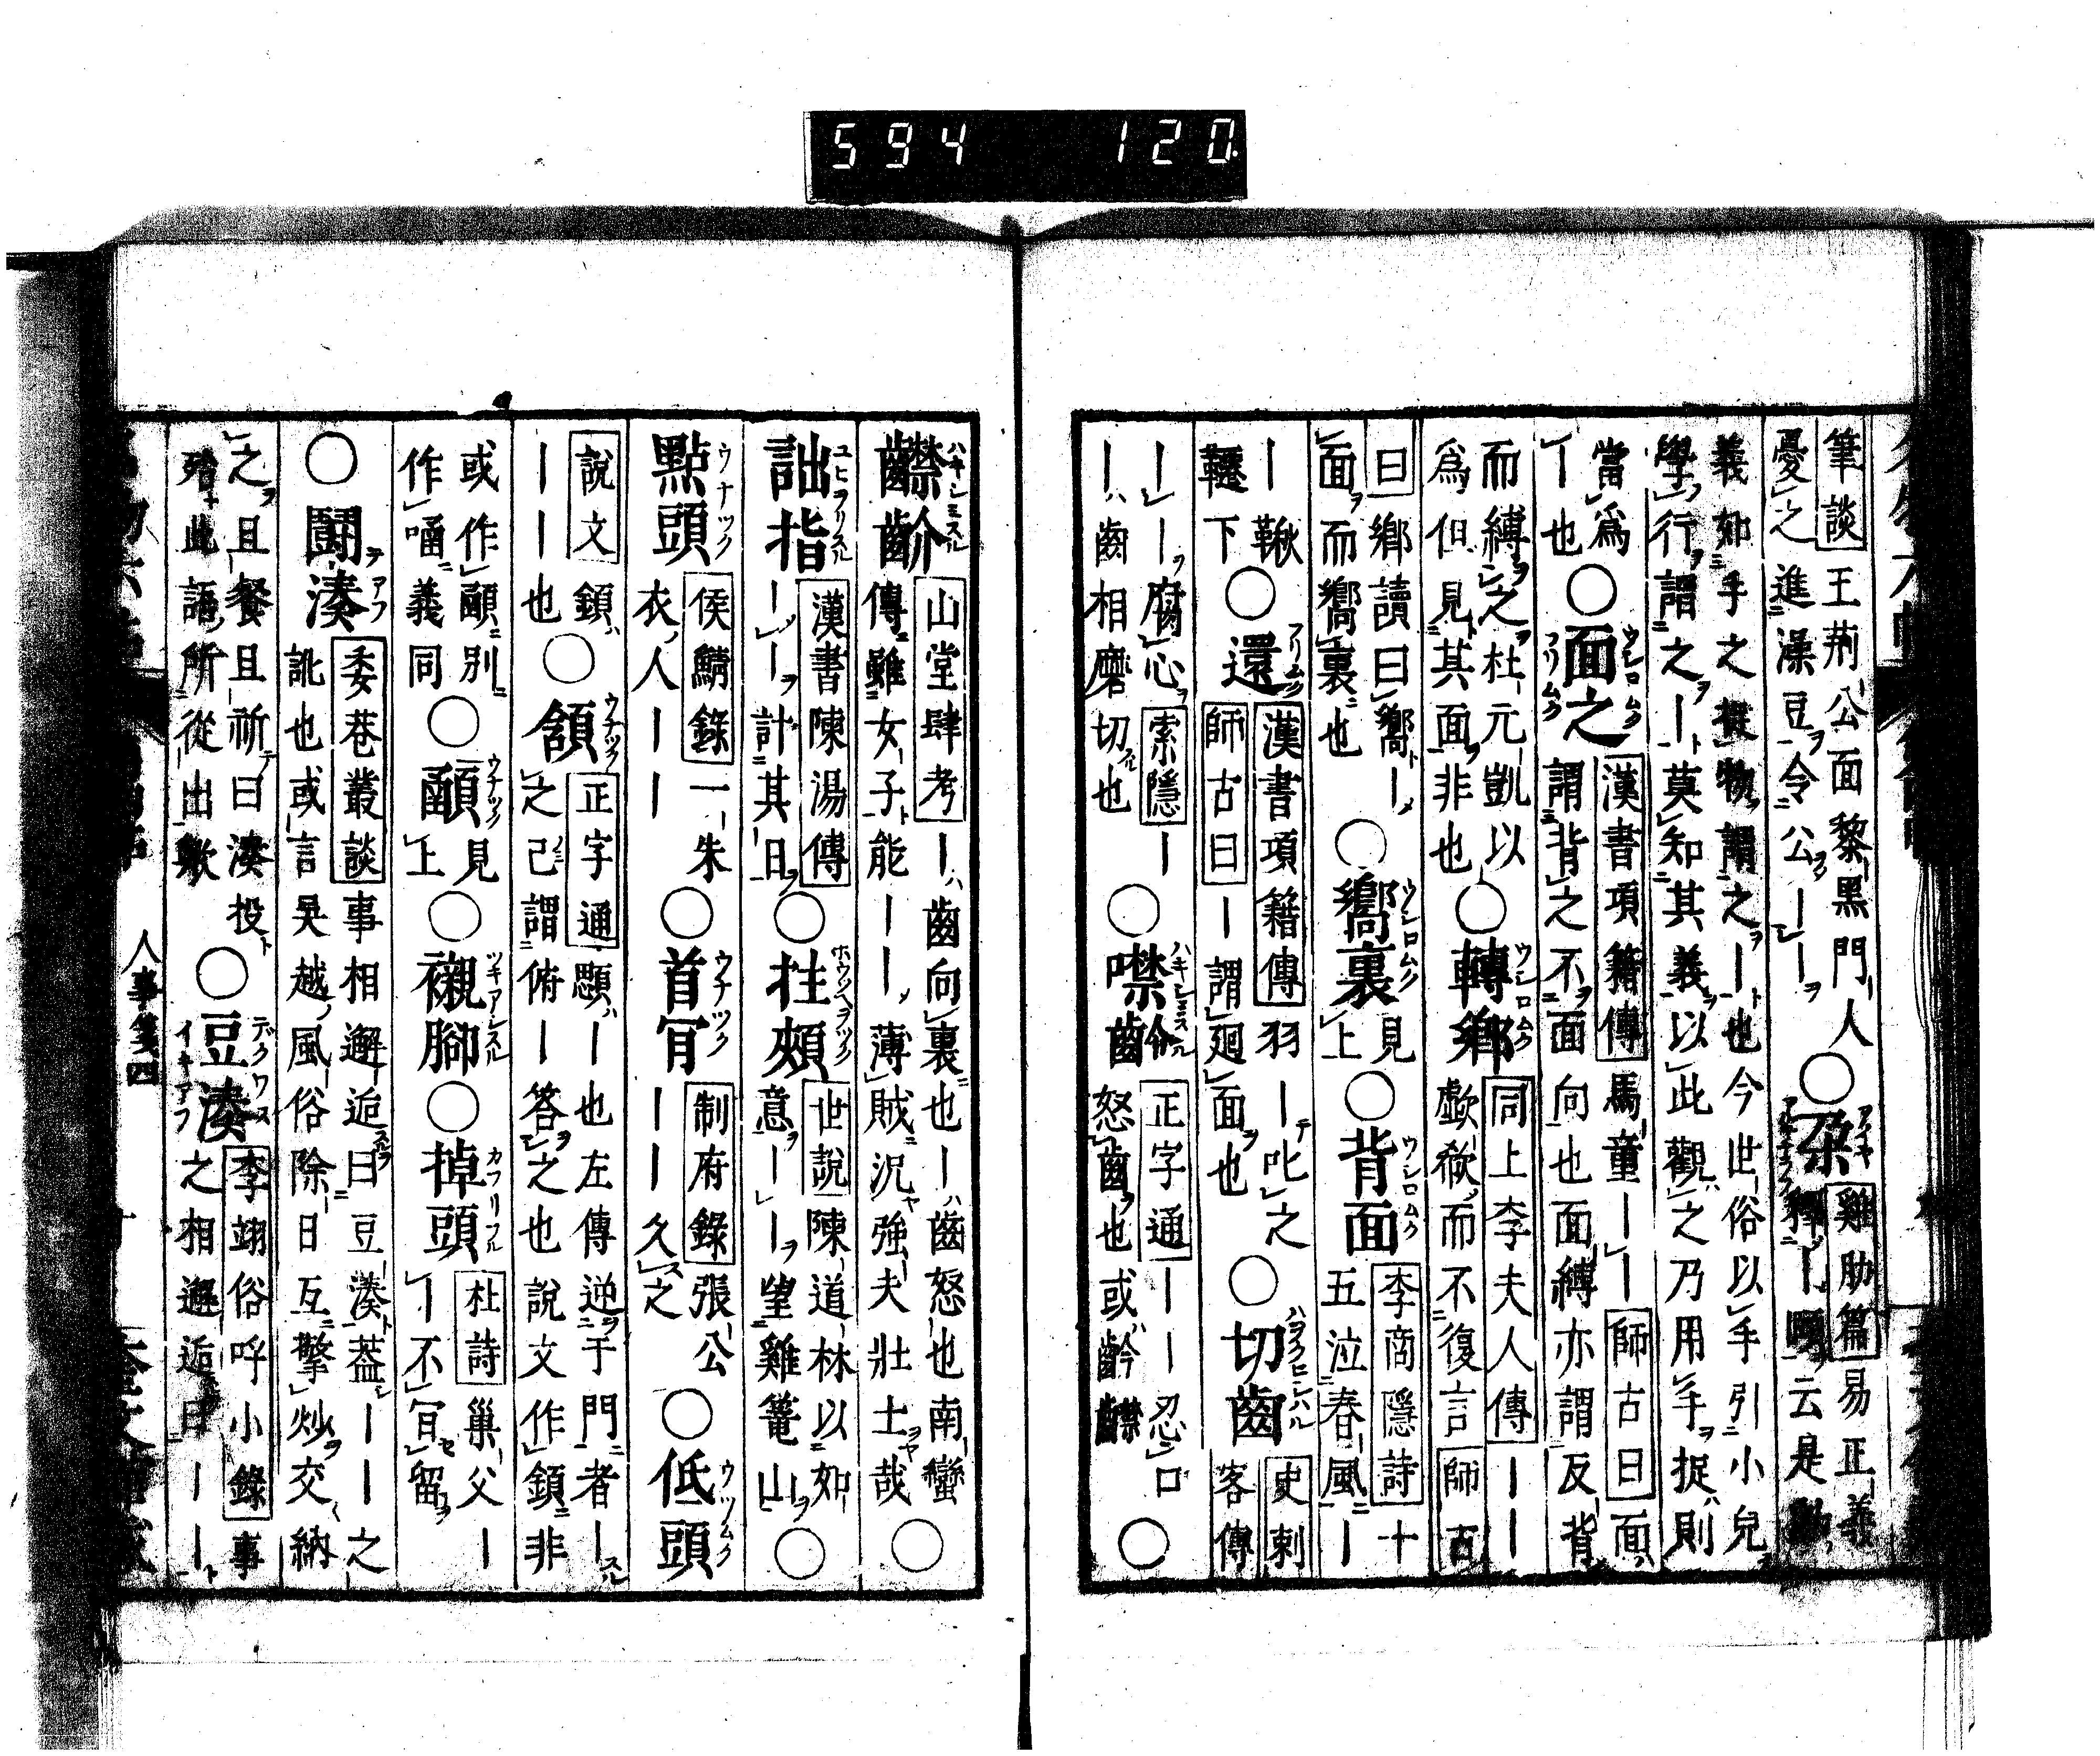 594 120
筆談王荆公面黎黑門人
憂之進澡豆令公――○朶雞肋篇易正義
義如手之捉物謂之――也今世俗以手引小兒
學行謂之―莫知其義以此觀之乃用手捉則
當爲○面之漢書項籍傳馬童――師古曰面
―也謂背之不面向也面縛亦謂反背
而縛之杜元凱以○轉鄉同上李夫人傳――
爲但見其面非也歔欷而不復言師古
曰鄉讀曰嚮―○嚮裏見○背面李商隱詩十
面而嚮裏也上五泣春風―
―鞦○還漢書項籍傳羽――叱之○切齒史刺
韆下師古曰―謂廻面也客傳
――腐心索隱―○噤齘正字通――忍口○
―齒相磨切也怒齒也或齡齽
齽齘山堂肆考―齒向裏也―齒怒也南蠻○
傳雖女子能――薄賊況強夫壯士哉
詘指漢書陳湯傳○拄頰世說陳道林以如○
――計其日意――望雞篭山
點頭侯鯖錄一朱○首肎制府錄張公○低頭
衣人――――久之
說文顉○頷正字通顋―也左傳逆于門者―
――也之己謂俯―答之也說文作顉非
或作頥別○顄見○襯腳○掉頭杜詩巢父―
作㗖義同上―不肎留
○鬭湊委巷叢談事相邂逅曰豆湊葢――之
訛也或言吳越風俗除日互擎炒交納
之且餐且祈曰湊投○豆湊李翊俗呼小錄事
殆此語所從出歟之相邂逅曰――
人事箋四